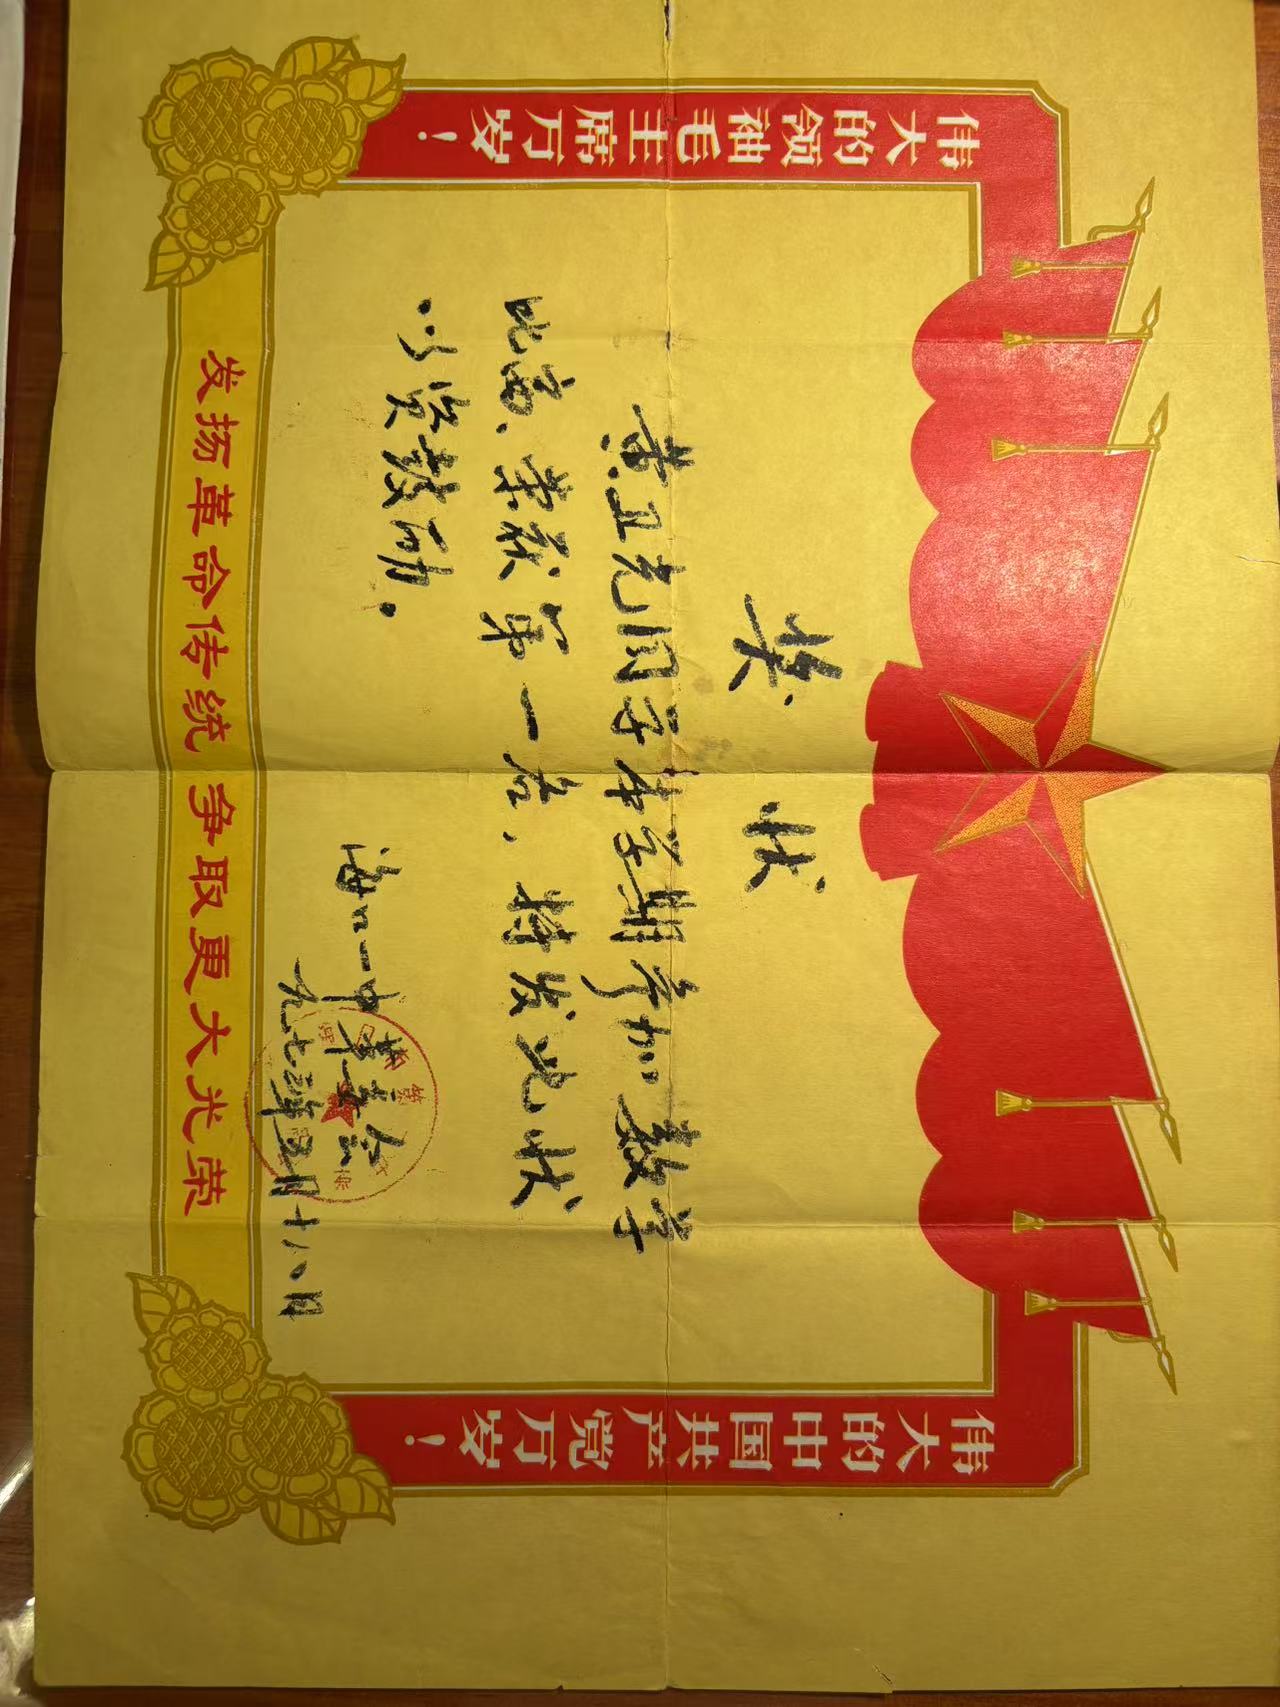 伟大的领袖毛主席万岁！
伟大的中国共产党万岁！
奖状
黄卫光同学本学期参加数学
比赛、荣获第一名，特发此状
以资鼓励。
海口一中革委会
一九七三年五月十八日
发扬革命传统 争取更大光荣